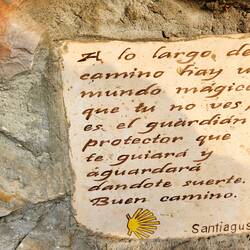 A lo largo de
camino hay u
mundo mágic
que tu no ves
es el guardián
protector que
te guiará y
aguardará
dandote suerte.
Buen camino.
Santiagu